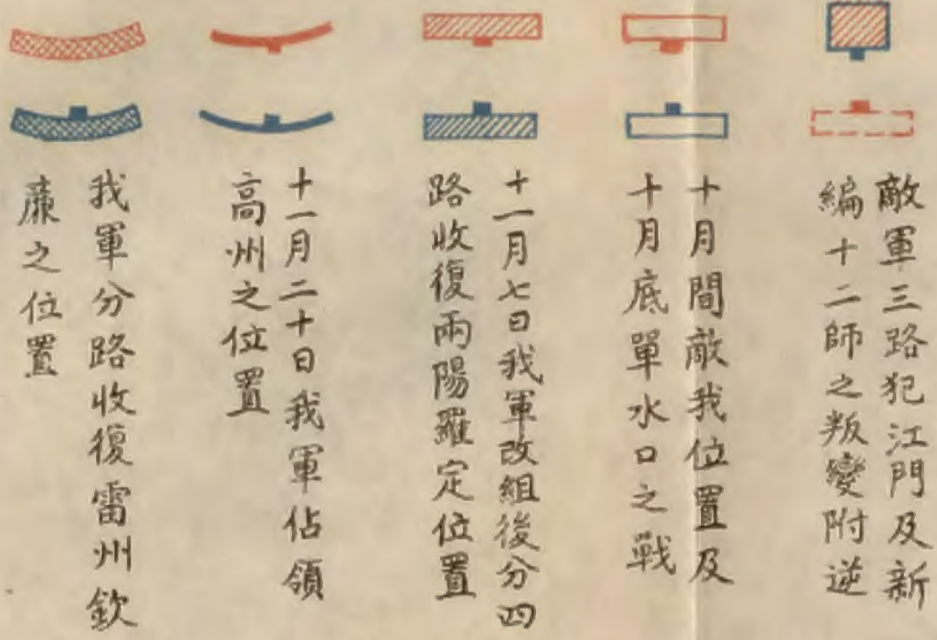 敵軍三路犯江門及新
編十二師之叛變附逆
十月間敵我位置及
十月底單水口之戰
十一月七日我軍改組後分四
路收復兩陽羅定位置
十一月二十日我軍佔領
高州之位置
我軍分路收復雷州欽
廉之位置